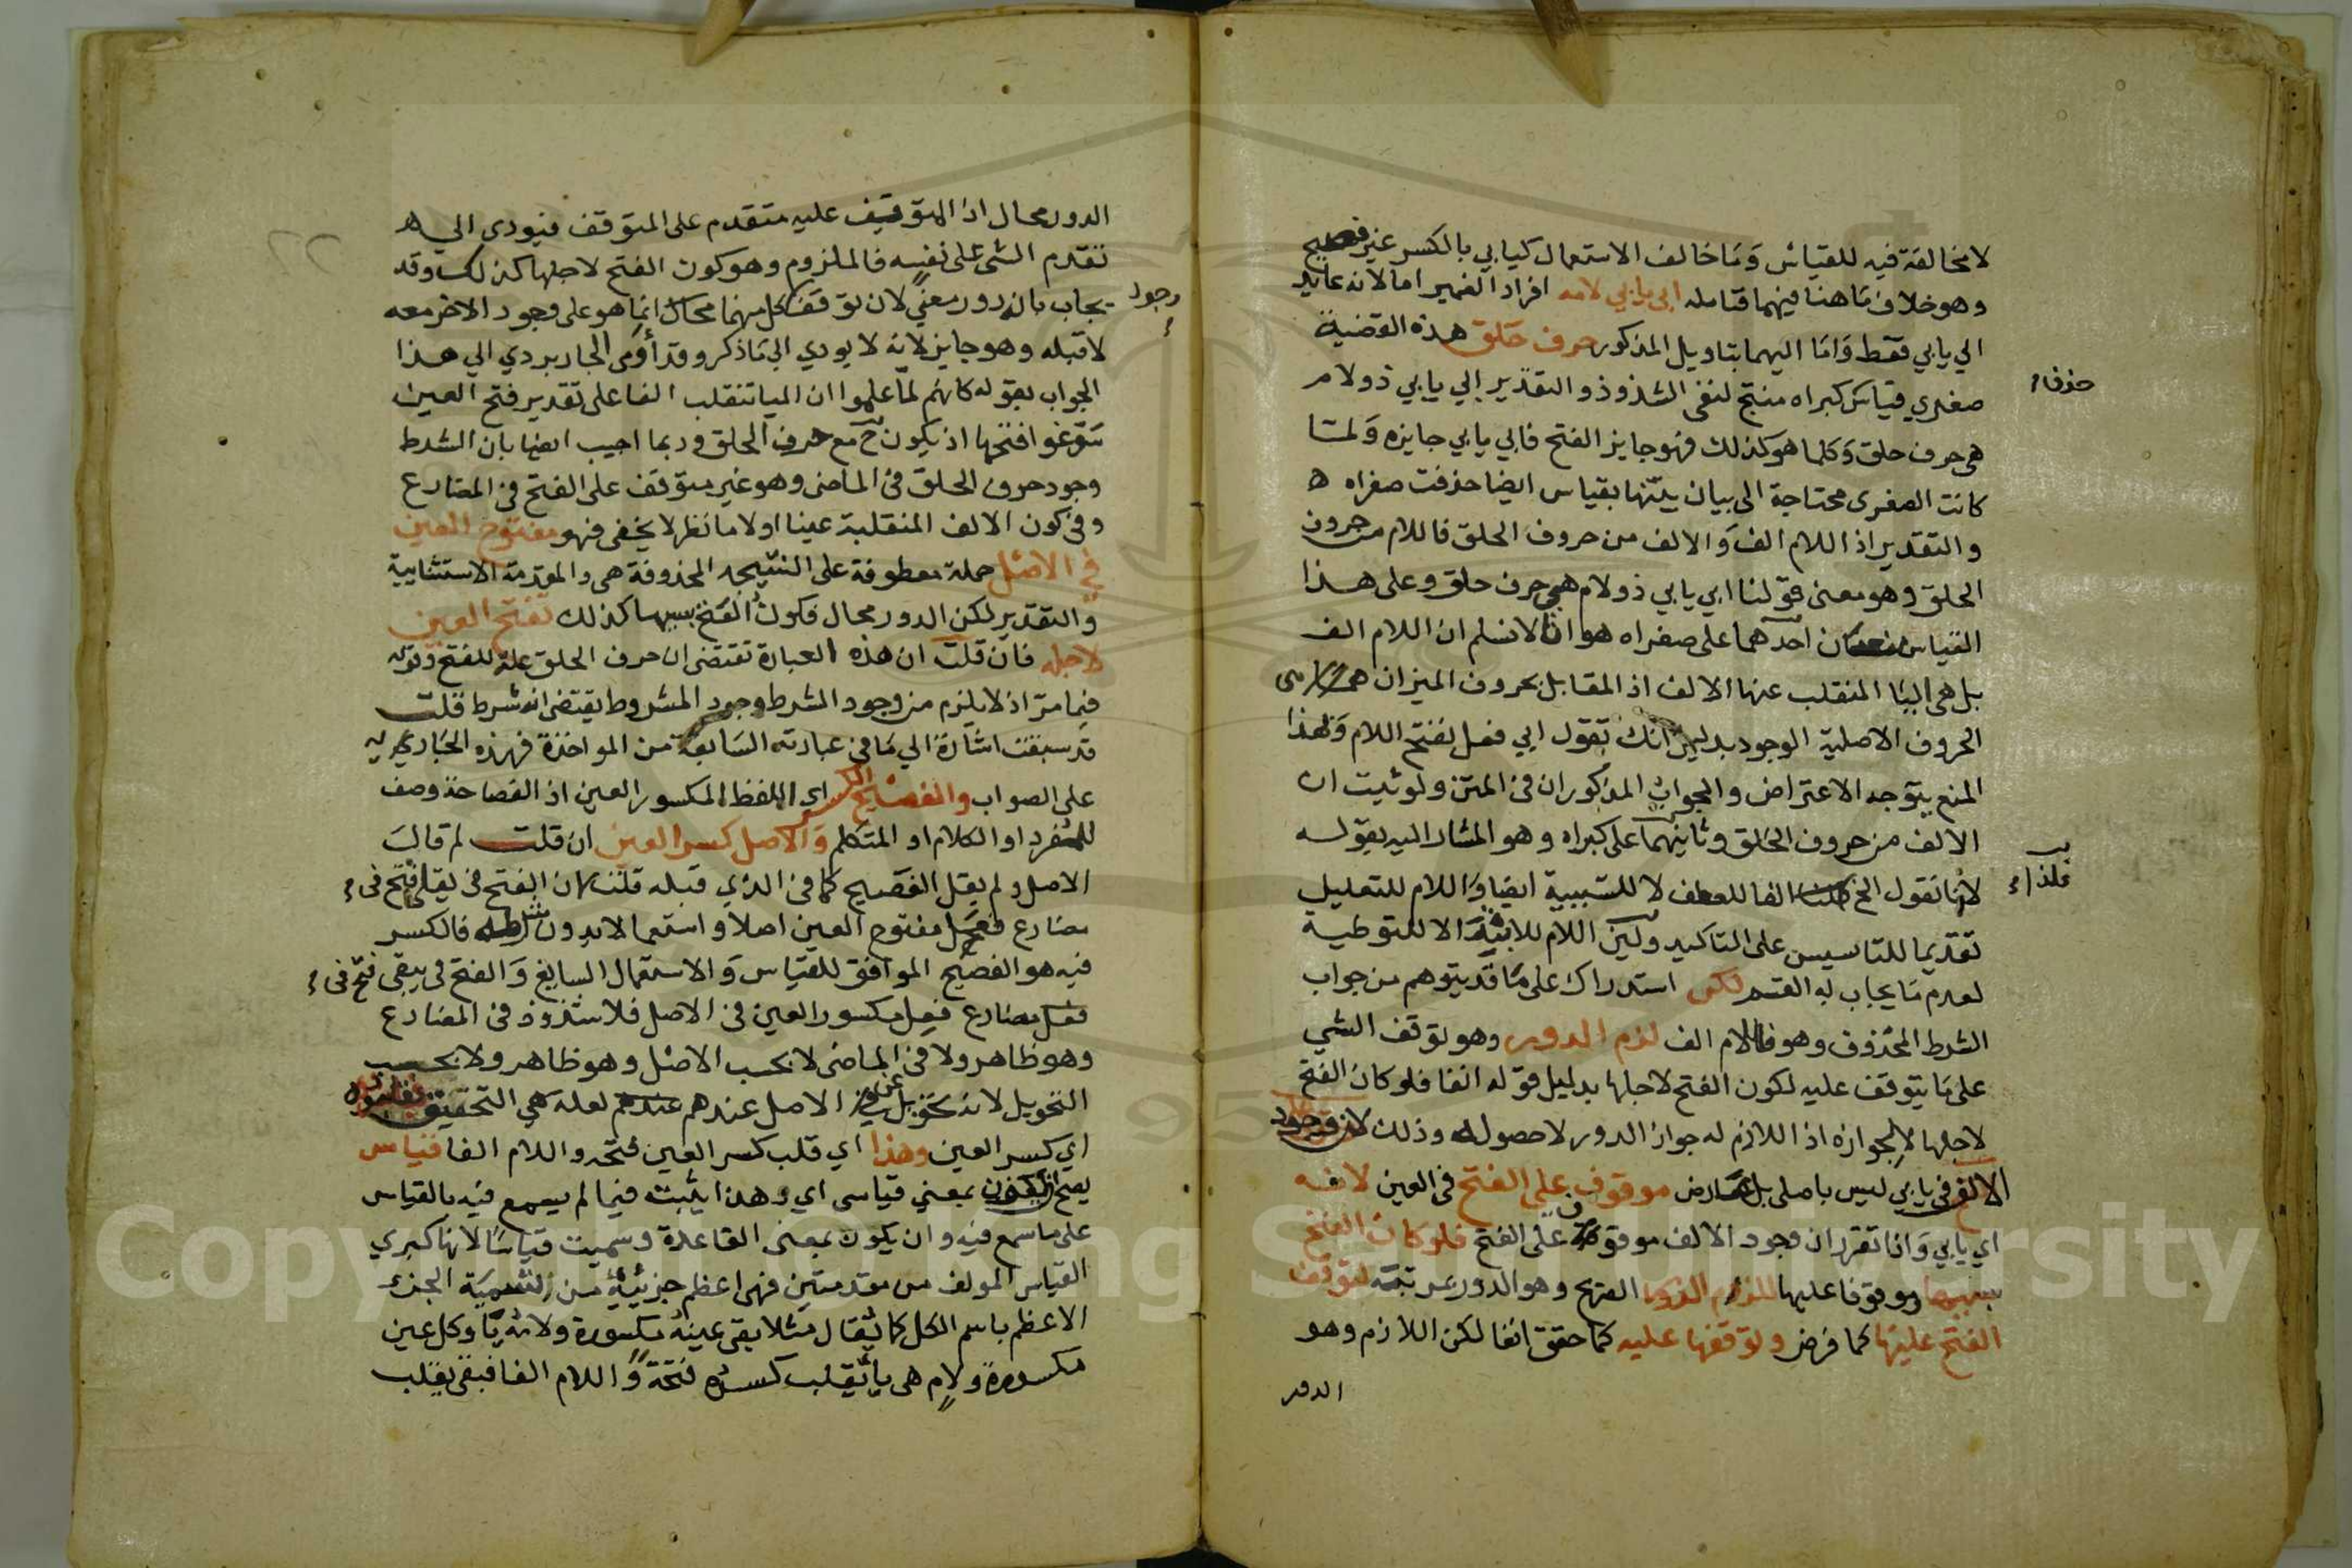 لا مخالفة فيه للقياس وما خالف الاستعمال كيابي بالكسر غير فصيح
وهو خلاف ما هنا فيهما فتامله ابى يابي لامه افراد الضمير اما لانه عايد
الي يابي فقط واما اليهما بتاويل المذكور حرف حلق هذه القضية
صغري قياس كبراه منتج لنفي الشذوذ والتقدير ابي يابي ذو لام
هي حرف حلق وكلما هو كذلك فهو جايز الفتح فابي يابي جايزه ولما
كانت الصغرى محتاجة الى بيان بينها بقياس ايضا حذفت صغراه
والتقدير اذ اللام الف والالف من حروف الحلق فاللام من حروف
الحلق وهو معنى قولنا ابي يابي ذو لام هي حرف حلق وعلى هذا
القياس احدهما على صغراه هو انا لا نسلم ان اللام الف
بل هي اليا المنقلب عنها الالف اذ المقابل بحروف الميزان
الحروف الاصلية الوجود بدليل انك تقول ابي فعل بفتح اللام وبهذا
المنع يتوجه الاعتراض والجواب المذكوران في المتن ولو ثبت ان
الالف من حروف الحلق وثانيهما على كبراه وهو المشار اليه بقوله
لانا نقول الخ الفا للعطف لا للسببية ايضا واللام للتعليل
تقديما للتاسيس على التاكيد وليس اللام للابتدا ولا للتوطية
لعدم ما يجاب به القسم لكن استدراك على ما قد يتوهم من جواب
الشرط المحذوف وهو فاللام الف لزم الدور وهو توقف الشي
على ما يتوقف عليه لكون الفتح لاجلها بدليل قوله انفا فلو كان الفتح
لاجلها لا لجوازه اذ اللازم له جواز الدور لا حصوله وذلك لان وجود
الالف في يابي ليس باصلى بل عارض موقوف على الفتح في العين لانه
اي يابي واذا تقرر ان وجود الالف موقوف على الفتح فلو كان الفتح
بسببها وموقوفا عليها للزم الدور الصريح وهو الدور بمرتبة لتوقف
الفتح عليها كما فرض وتوقفها عليه كما حقق انفا لكن اللازم وهو
الدور
حذف
الدور محال اذ المتوقف عليه متقدم على المتوقف فيودى الي
تقدم الشي على نفسه فالملزوم وهو كون الفتح لاجلها كذلك وقد
يجاب بانه دور معي لان توقف كل منهما محال انما هو على وجود الاخر معه
وجود
لا قبله وهو جايز لانه لا يودي الي ما ذكر وقد أومى الجاربردي الي هذا
الجواب بقوله كانهم لما علموا ان اليا تنقلب الفا على تقدير فتح العين
سوغوا فتحها اذ يكون ح مع حرف الحلق وربما اجيب ايضا بان الشرط
وجود حرف الحلق في الماضي وهو غير متوقف على الفتح في المضارع
وفي كون الالف المنقلبة عينا او لاما نظر لا يخفى فهو مفتوح العين
في الاصل جملة معطوفة على النتيجة المحذوفة هي والمقدمة الاستثنايية
والتقدير لكن الدور محال فكون الفتح بسببها كذلك تفتح العين
لاجله فان قلت ان هذه العبارة تقتضى ان حرف الحلق علة للفتح وقوله
فيما مر اذ لا يلزم من وجود الشرط وجود المشروط يقتضى انه شرط قلت
قد سبقت اشارة الي ما في عبارته السابقة من المواخذة فهذه
على الصواب والفصيح الكسر اي اللفظ المكسور العين اذ الفصاحة وصف
للمفرد او الكلام او المتكلم والاصل كسر العين ان قلت لم قال
الاصل ولم يقل الفصيح كما في الذي قبله قلت لان الفتح في يقلى فتح في
مضارع فعل مفتوح العين اصلا واستعمالا بدون شرطه فالكسر
فيه هو الفصيح الموافق للقياس والاستعمال السايغ والفتح في يبقى فتح في
مضارع فعل مكسور العين في الاصل فلا شذوذ في المضارع
وهو ظاهر ولا في الماضى لا بحسب الاصل وهو ظاهر ولا بحسب
التحويل لانه تحويل عن الاصل عندهم لعلة هي التحقيق فقلبوه
اي كسر العين وهذا اي قلب كسر العين فتحة واللام الفا قياس
يصح ان يكون بمعني قياسى اي وهذا يثبت فيما لم يسمع فيه بالقياس
على ما سمع فيه وان يكون بمعنى القاعدة وسميت قياسا لانها كبري
القياس المولف من مقدمتين فهي اعظم جزئيه من تسمية الجزء
الاعظم باسم الكل كما يقال مثلا بقى عينه مكسورة ولامه يا وكل عين
مكسورة ولام هي يا تقلب كسرته فتحة واللام الفا فبقى يقلب